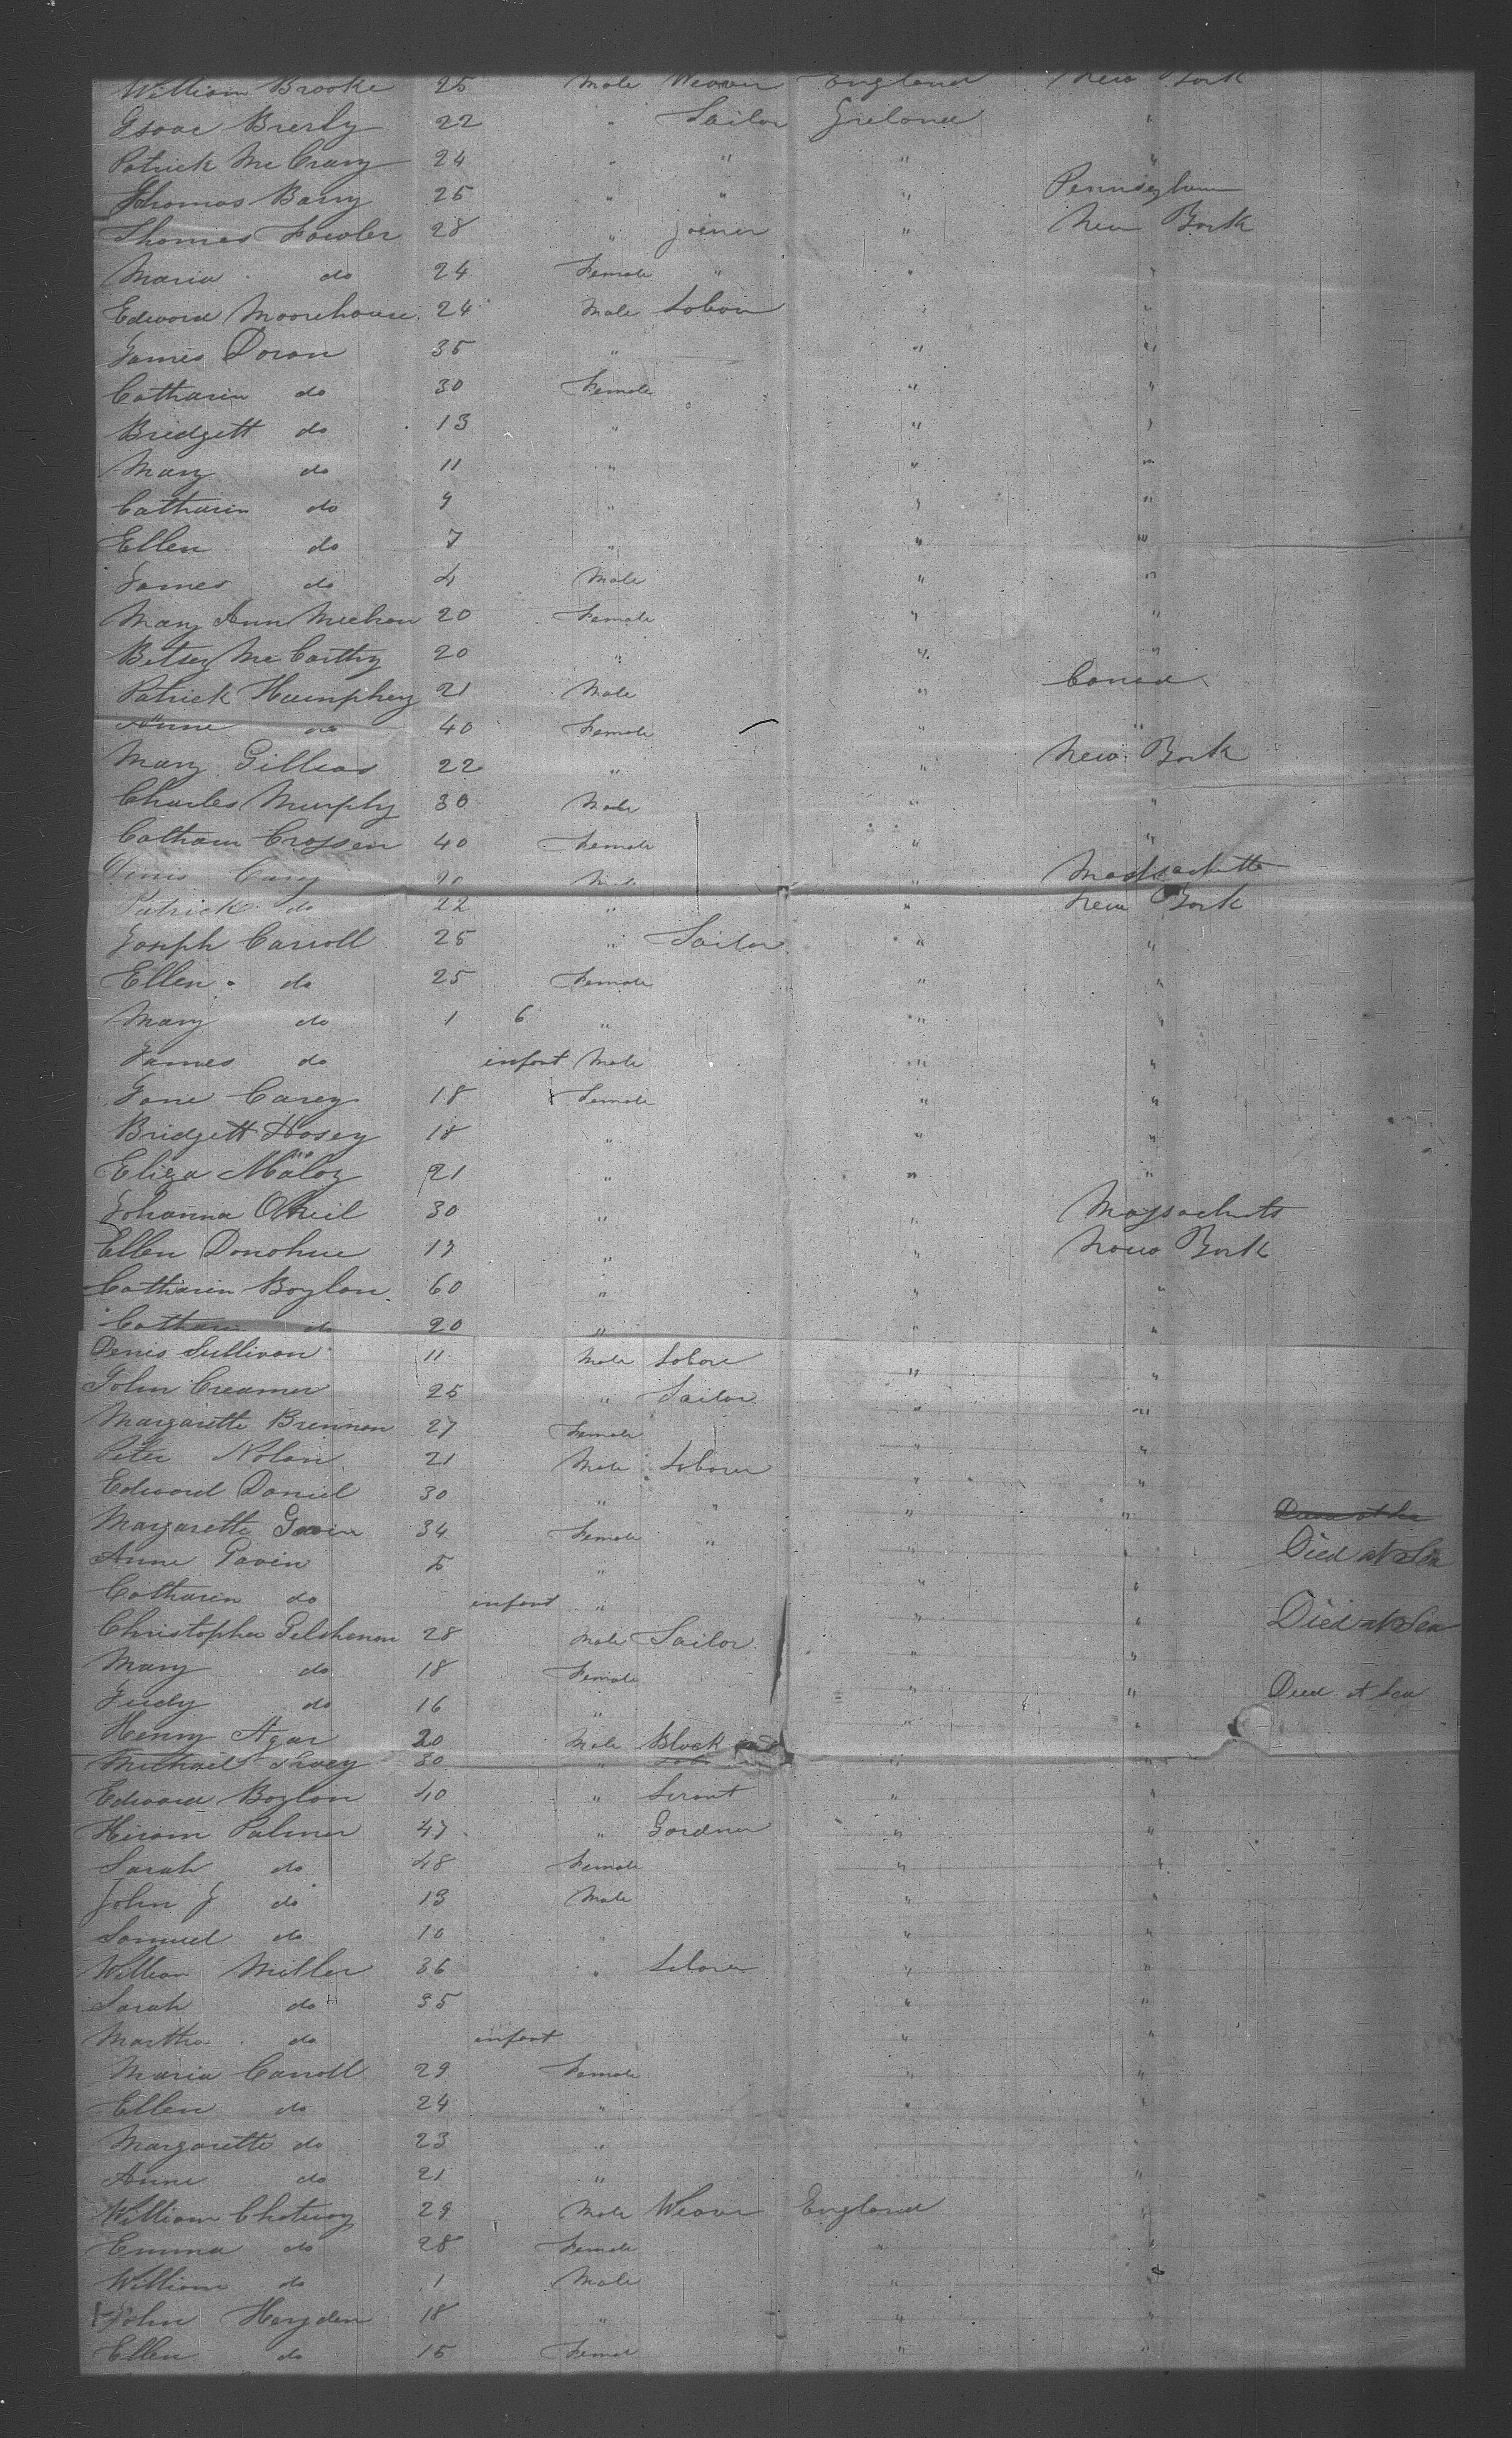 William Brooke 25 Male Weaver England New York
Isaac Bresly 22 " Sailor Ireland "
Patrick McCrary 24 " " " "
Thomas Barry 25 " " " Pennsylvan
Thomas Fowler 28 " Joiner " New York
Maria do 24 Female " " "
Edward Moorehouse 24 Male Labour " "
James Doran 35 " " "
Catharin do 30 Female " "
Bridgett do 13 " " "
Mary do 11 " " "
Catharin do 9 " " "
Ellen do 7 " " "
James do 4 Male " "
Mary Ann Meehan 20 Female " "
Betsey McCarthy 20 " " "
Patrick Humphrey 21 Male " Canad
Anne do 40 Female " "
Mary Gilleas 22 " " New York
Charles Murphy 30 Male " "
Catharn Crossen 40 Female " "
Denis Carey 20 Male " Massachetts
Patrick do 22 " " New York
Joseph Carroll 25 " Sailor " "
Ellen do 25 Female " "
Mary do 1 6 " " "
James do infant Male " "
Jane Carey 18 Female " "
Bridgett Hosey 18 " " "
Eliza Maloy 21 " " "
Johanna ONeil 30 " " Massachuts
Ellen Donohue 17 " " New York
Catharin Boylan 60 " " "
Catharin do 20 " " "
Denis Sullivan 11 Male Labore " "
John Creamer 25 " Sailor " "
Margarette Brennan 27 Female " "
Peter Nolan 21 Male Laborer " "
Edward Daniel 30 " " " "
Margarette Gavin 34 Female " " " Died at Sea
Anne Gavin 5 " " " Died at Sea
Catharin do infant " " "
Christopher 28 Male Sailor " " Died at Sea
Mary do 18 Female " "
Judy do 16 " " " Died at Sea
Henry Agar 20 Male Black " "
Michael 30 " " "
Edward Boylan 40 " Servant " "
Hiram Palmer 47 " Gardner " "
Sarah do 48 Female " "
John J do 13 Male " "
Samuel do 10 " " "
William Miller 36 " Laborer " "
Sarah do 35 " "
Martha do infant " "
Maria Carroll 29 Female " "
Ellen do 24 " " "
Margarette do 23 " "
Anne do 21 " "
William Chatway 29 Male Weaver England "
Emma do 28 Female " "
William do 1 Male " "
John Hayden 18 " " "
Ellen do 15 Female " "